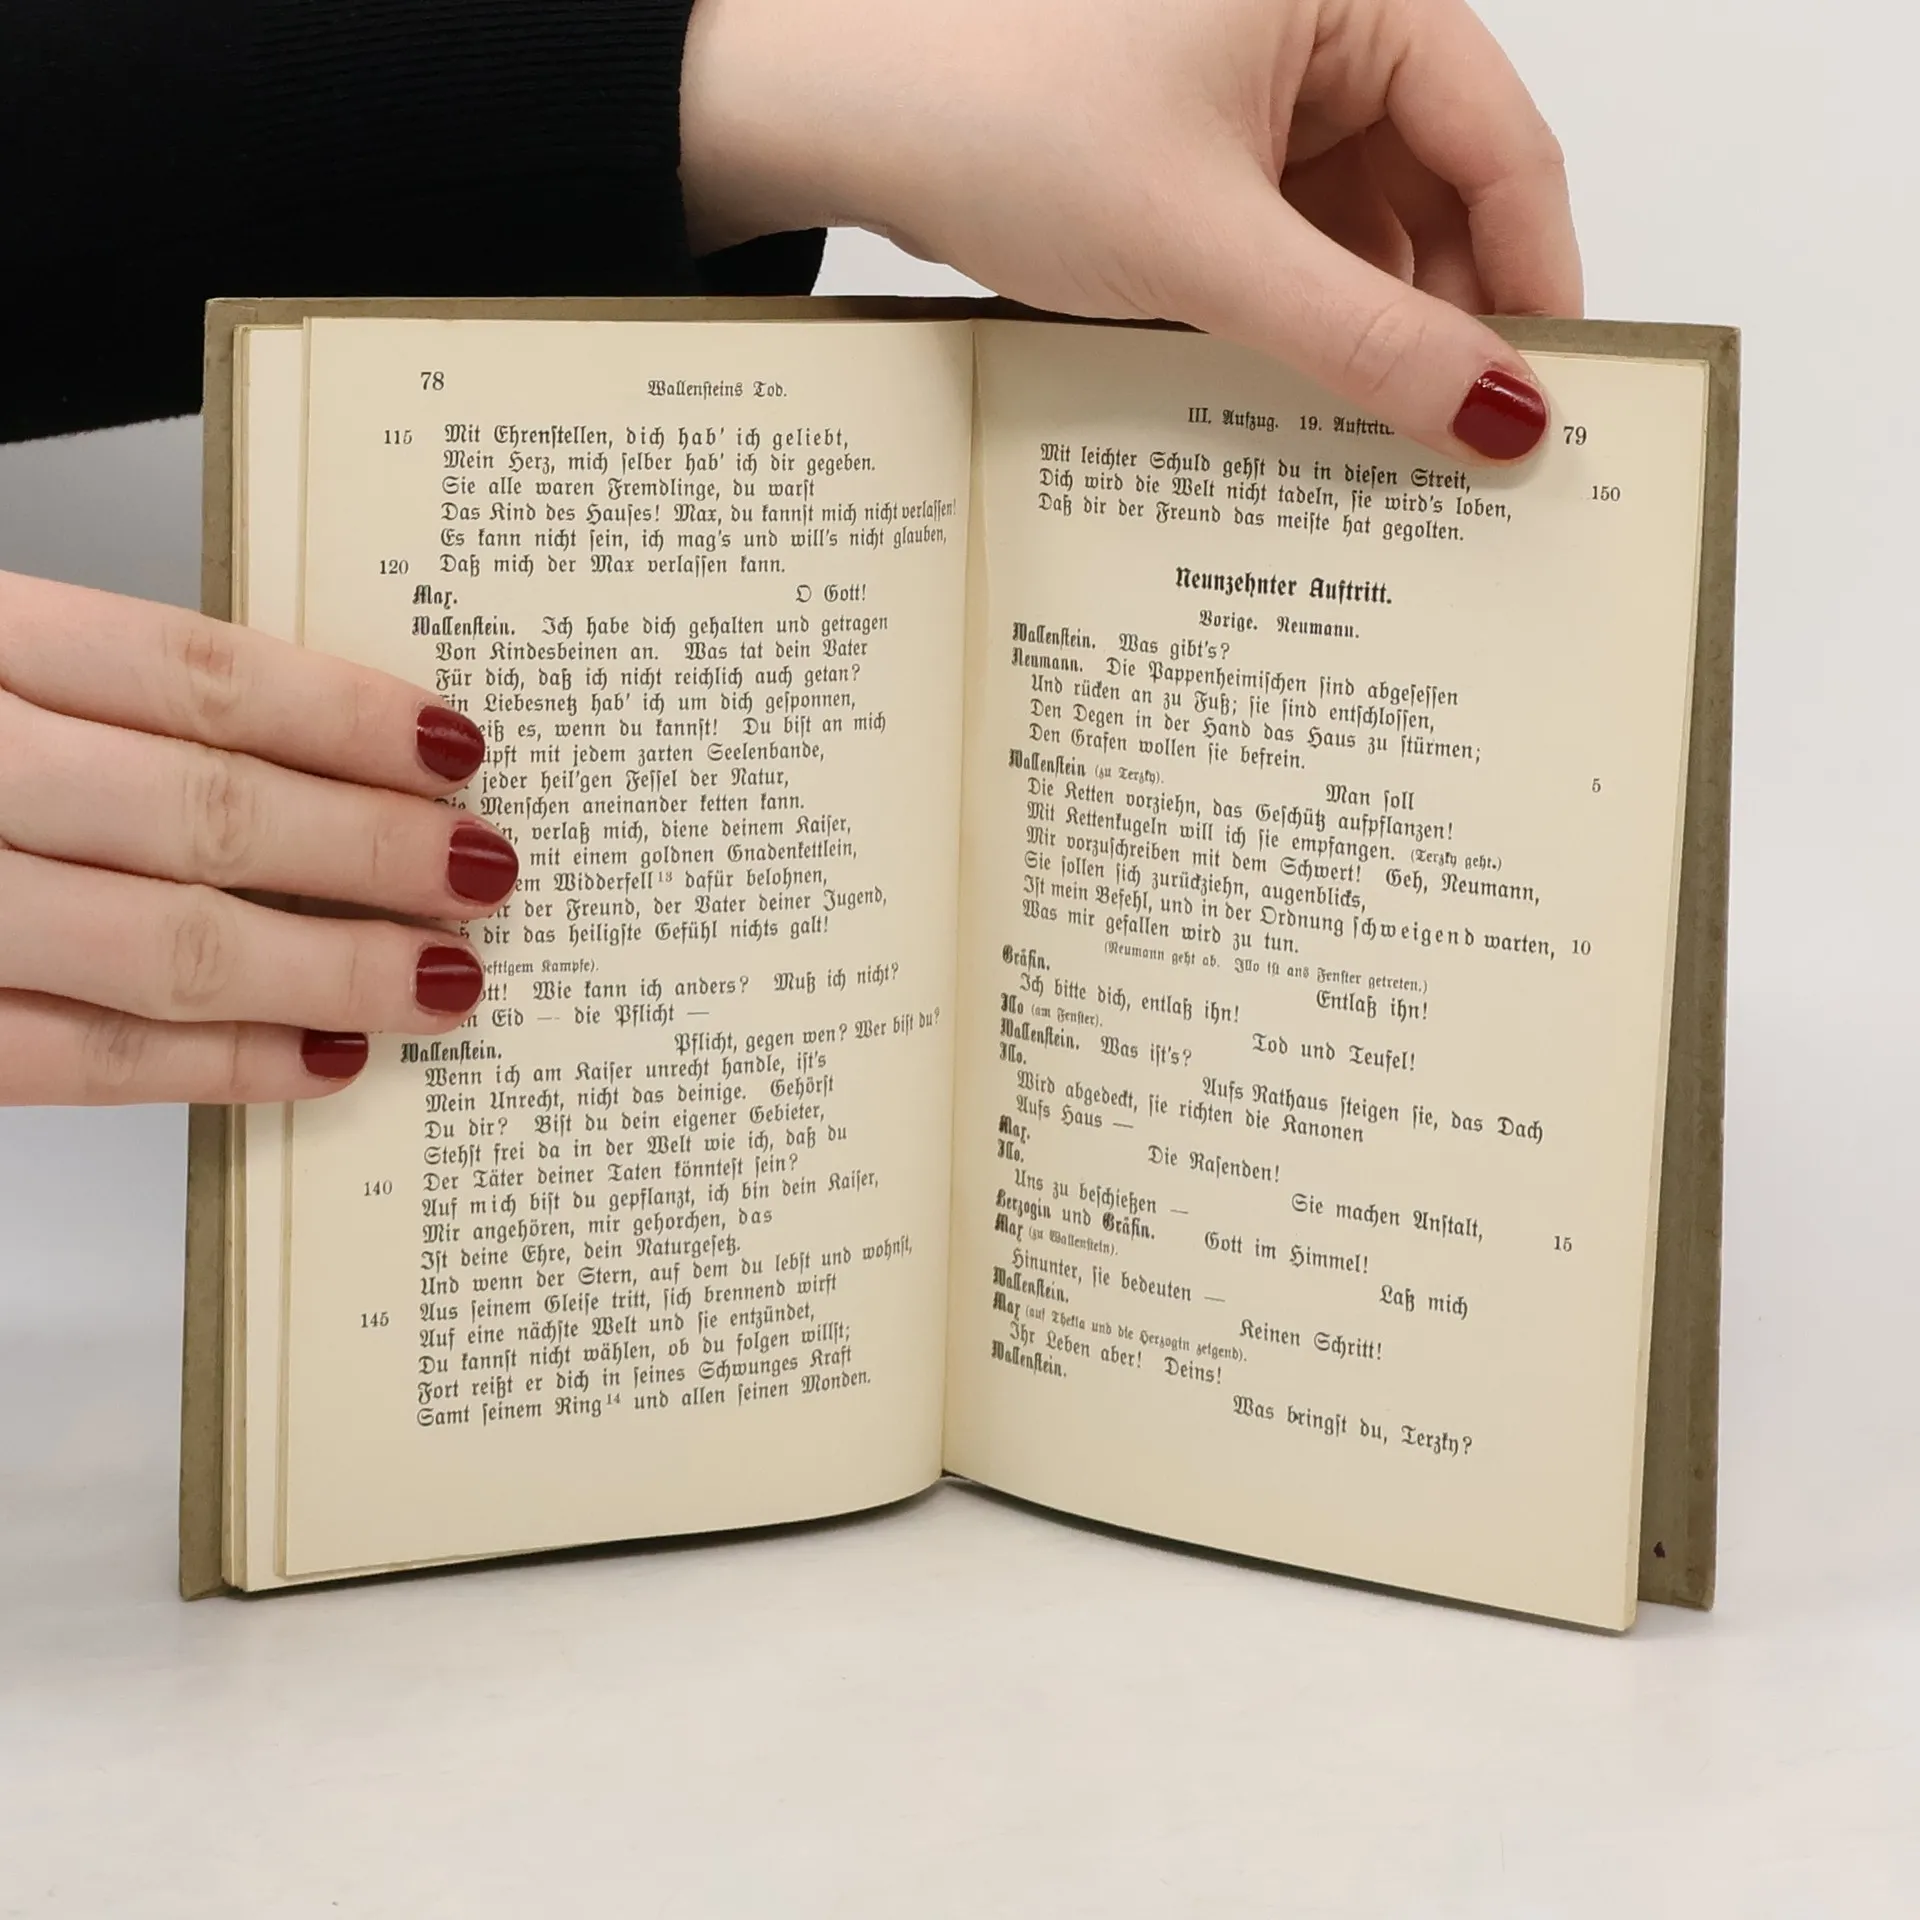 78
Wallenſteins Tod.
115 Mit Ehrenſtellen, dich hab' ich geliebt,
Mein Herz, mich ſelber hab' ich dir gegeben.
Sie alle waren Fremdlinge, du warſt
Das Kind des Hauſes! Max, du kannſt mich nicht verlaſſen!
Es kann nicht ſein, ich mag's und will's nicht glauben,
120 Daß mich der Max verlaſſen kann.
Max. O Gott!
Wallenſtein. Ich habe dich gehalten und getragen
Von Kindesbeinen an. Was tat dein Vater
Für dich, daß ich nicht reichlich auch getan?
Liebesnetz hab' ich um dich geſponnen,
es, wenn du kannſt! Du biſt an mich
mit jedem zarten Seelenbande,
jeder heil'gen Feſſel der Natur,
Die Menſchen aneinander ketten kann.
verlaß mich, diene deinem Kaiſer,
mit einem goldnen Gnadenkettlein,
Widderfell¹³ dafür belohnen,
der Freund, der Vater deiner Jugend,
dir das heiligſte Gefühl nichts galt!
Kampfe).
Wie kann ich anders? Muß ich nicht?
Eid — die Pflicht —
Wallenſtein. Pflicht, gegen wen? Wer biſt du?
Wenn ich am Kaiſer unrecht handle, iſt's
Mein Unrecht, nicht das deinige. Gehörſt
Du dir? Biſt du dein eigener Gebieter,
Stehſt frei da in der Welt wie ich, daß du
Der Täter deiner Taten könnteſt ſein?
140 Auf mich biſt du gepflanzt, ich bin dein Kaiſer,
Mir angehören, mir gehorchen, das
Iſt deine Ehre, dein Naturgeſetz.
Und wenn der Stern, auf dem du lebſt und wohnſt,
Aus ſeinem Gleiſe tritt, ſich brennend wirft
145 Auf eine nächſte Welt und ſie entzündet,
Du kannſt nicht wählen, ob du folgen willſt;
Fort reißt er dich in ſeines Schwunges Kraft
Samt ſeinem Ring¹⁴ und allen ſeinen Monden.
III. Aufzug. 19. Auftritt.
79
Mit leichter Schuld gehſt du in dieſen Streit,
Dich wird die Welt nicht tadeln, ſie wird's loben, 150
Daß dir der Freund das meiſte hat gegolten.
Neunzehnter Auftritt.
Vorige. Neumann.
Wallenſtein. Was gibt's?
Neumann. Die Pappenheimiſchen ſind abgeſeſſen
Und rücken an zu Fuß; ſie ſind entſchloſſen,
Den Degen in der Hand das Haus zu ſtürmen;
Den Grafen wollen ſie befrein.
Wallenſtein (zu Terzky). Man ſoll 5
Die Ketten vorziehn, das Geſchütz aufpflanzen!
Mit Kettenkugeln will ich ſie empfangen. (Terzky geht.)
Mir vorzuſchreiben mit dem Schwert! Geh, Neumann,
Sie ſollen ſich zurückziehn, augenblicks,
Iſt mein Befehl, und in der Ordnung ſchweigend warten, 10
Was mir gefallen wird zu tun.
(Neumann geht ab. Illo iſt ans Fenſter getreten.)
Gräfin. Entlaß ihn!
Ich bitte dich, entlaß ihn!
Illo (am Fenſter). Tod und Teufel!
Wallenſtein. Was iſt's?
Illo. Aufs Rathaus ſteigen ſie, das Dach
Wird abgedeckt, ſie richten die Kanonen
Aufs Haus —
Max. Die Raſenden!
Illo. Sie machen Anſtalt,
Uns zu beſchießen — 15
Herzogin und Gräfin. Gott im Himmel!
Max (zu Wallenſtein). Laß mich
Hinunter, ſie bedeuten —
Wallenſtein. Keinen Schritt!
Max (auf Thekla und die Herzogin zeigend).
Ihr Leben aber! Deins!
Wallenſtein. Was bringſt du, Terzky?